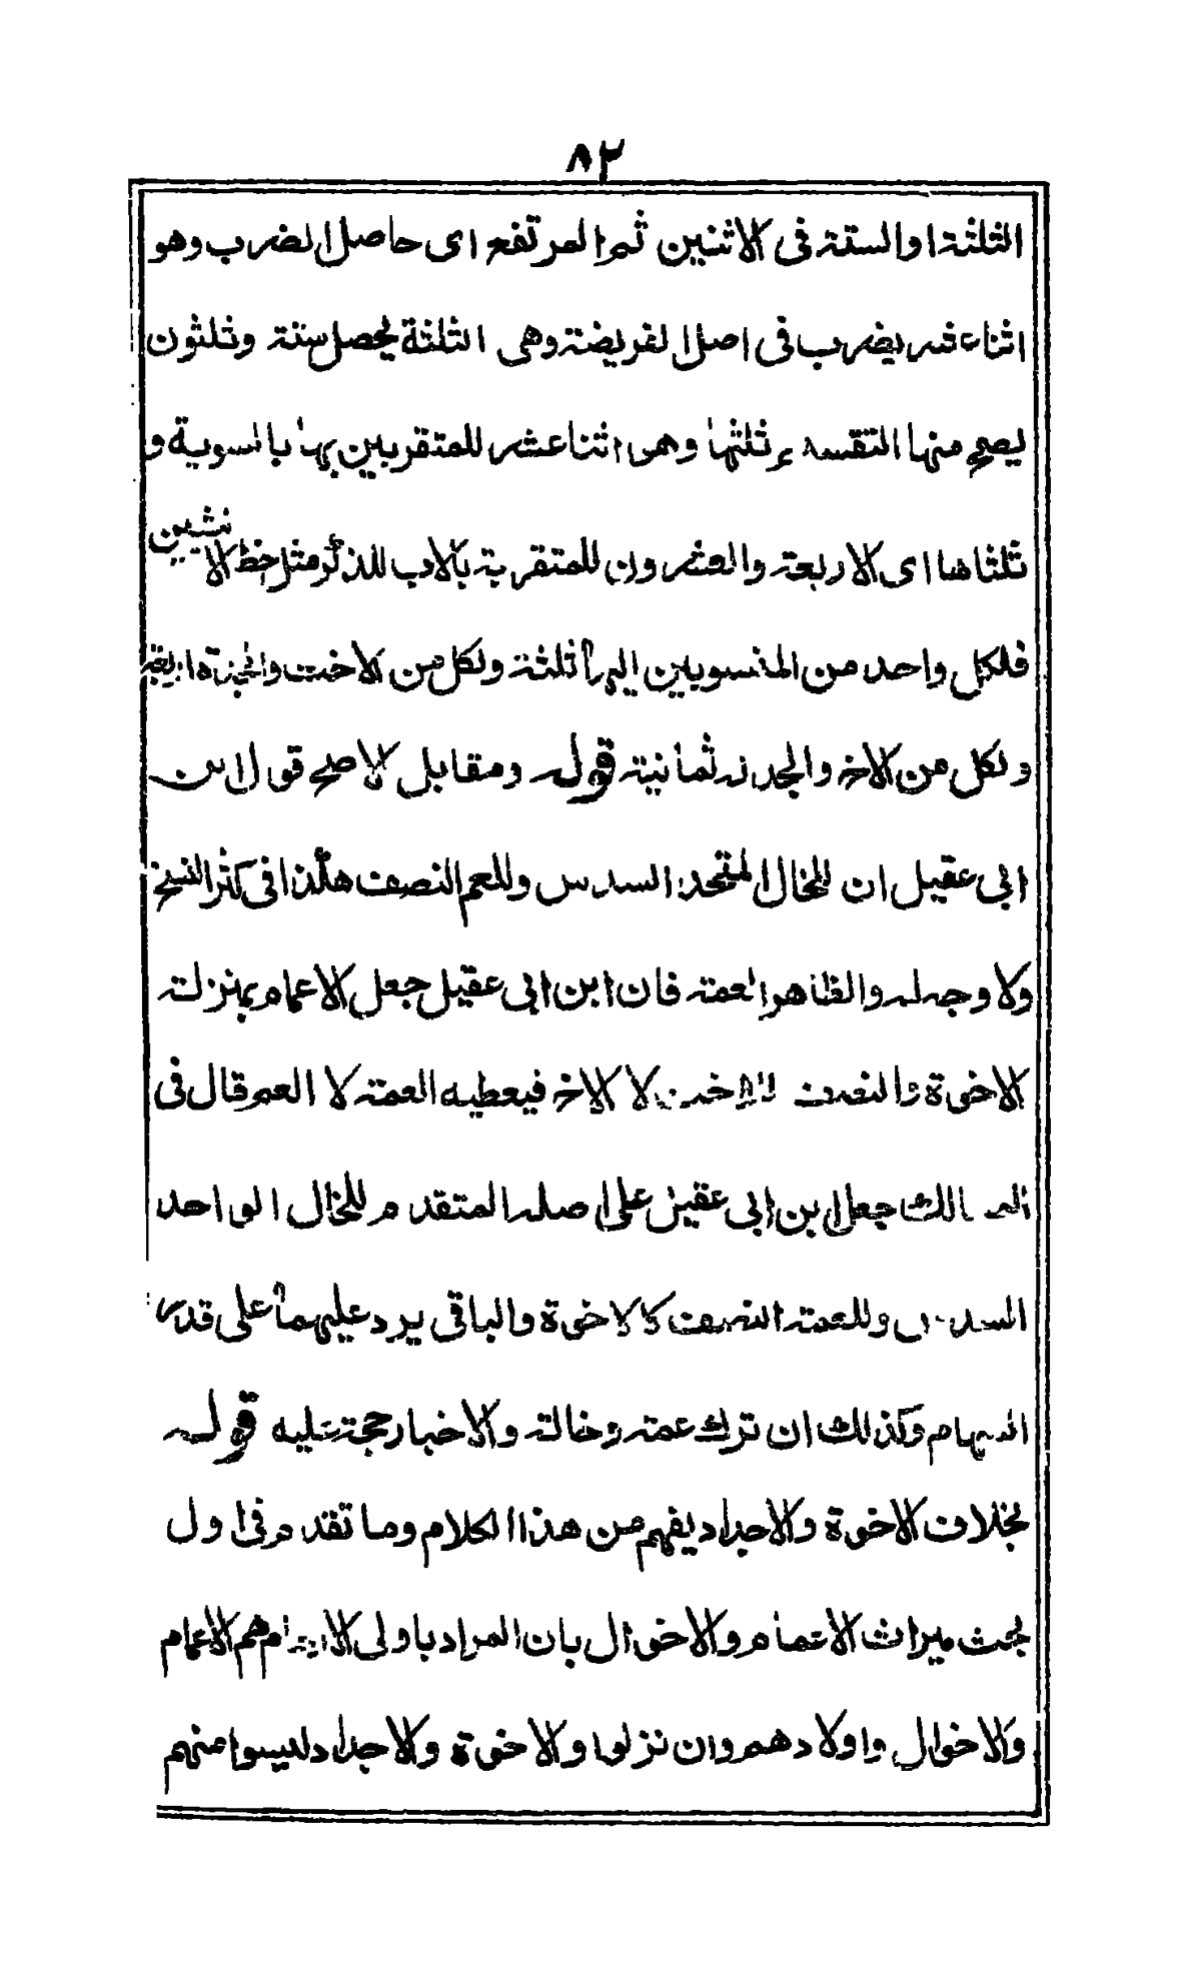 ٨٢
الثلثة او الستة فى الاثنين ثم المرتفع اى حاصل الضرب وهو
اثنا عشر يضرب فى اصل الفريضة وهى الثلثة يحصل ستة وثلثون
يصح منها التقسيم ثلثها وهى اثنا عشر للمتقربين بها بالسوية و
ثلثاها اى الاربعة والعشرون للمتقربة بالاب للذكر مثل حظ الانثيين
فلكل واحد من المنسوبين اليها ثلثة ولكل من الاخت والجدة اربعة
ولكل من الاخ والجد له ثمانية قوله ومقابل الاصح قول ابن
ابى عقيل ان للخال المتحد السدس وللعم النصف هكذا فى اكثر النسخ
ولا وجه له والظاهر العمة فان ابن ابى عقيل جعل الاعمام بمنزلة
الاخوة والنصف للاخت لا الاخ فيعطيه العمة لا العم قال فى
المسالك جعل ابن ابى عقيل على اصله المتقدم للخال الواحد
السدس وللعمة النصف كالاخوة والباقى يرد عليهما على قدر
السهام وكذلك ان ترك عمة وخالة والاخبار حجة عليه قوله
بخلاف الاخوة والاجداد يفهم من هذا الكلام وما تقدم فى اول
بحث ميراث الاعمام والاخوال بان المراد باولى الارحام هم الاعمام
والاخوال واولادهم وان نزلوا والاخوة والاجداد ليسوا منهم